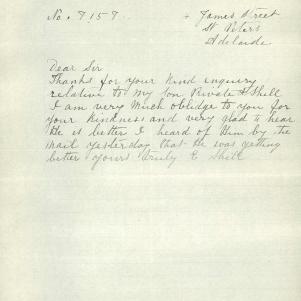 No. 7157
James Street
St Peters
Adelaide
Dear Sir
Thanks for your kind inquiry
relative to my Son Private Shill
I am very much obliedge to you for
your kindness and very glad to hear
He is better I heard of Him by the
mail yesterday that He was getting
better Yours truly E Shill